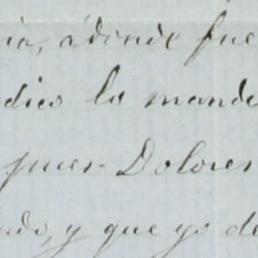 ria, á donde fue
dico la mande
pues Dolores
ndo, y que yo de